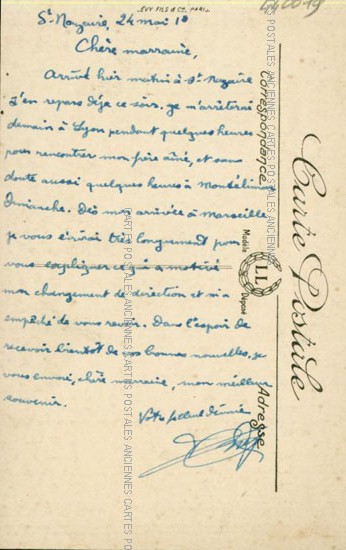 LEVY FILS & Cie, PARIS
St Nazaire, 24 mai 10
Chère marraine,
Arrivé hier matin à St Nazaire
j'en repars déjà ce soir. je m'arrêterai
demain à Lyon pendant quelques heures
pour rencontrer mon frère aîné, et sans
doute aussi quelques heures à Montélimar
Dimanche. Dès mon arrivée à Marseille
je vous écrirai très longuement pour
vous expliquer ce qui a motivé
mon changement de direction et m'a
empêché de vous revoir. Dans l'espoir de
recevoir bientôt de vos bonnes nouvelles, je
vous envoie, chère marraine, mon meilleur
souvenir.
Votre filleul dévoué
Carte Postale
Correspondance
Modèle
LL
Déposé
Adresse
CARTES POSTALES ANCIENNES CARTES POSTALES ANCIENNES CARTES POSTALES ANCIENNES
CARTES POSTALES ANCIENNES CARTES POSTALES ANCIENNES CARTES POSTALES